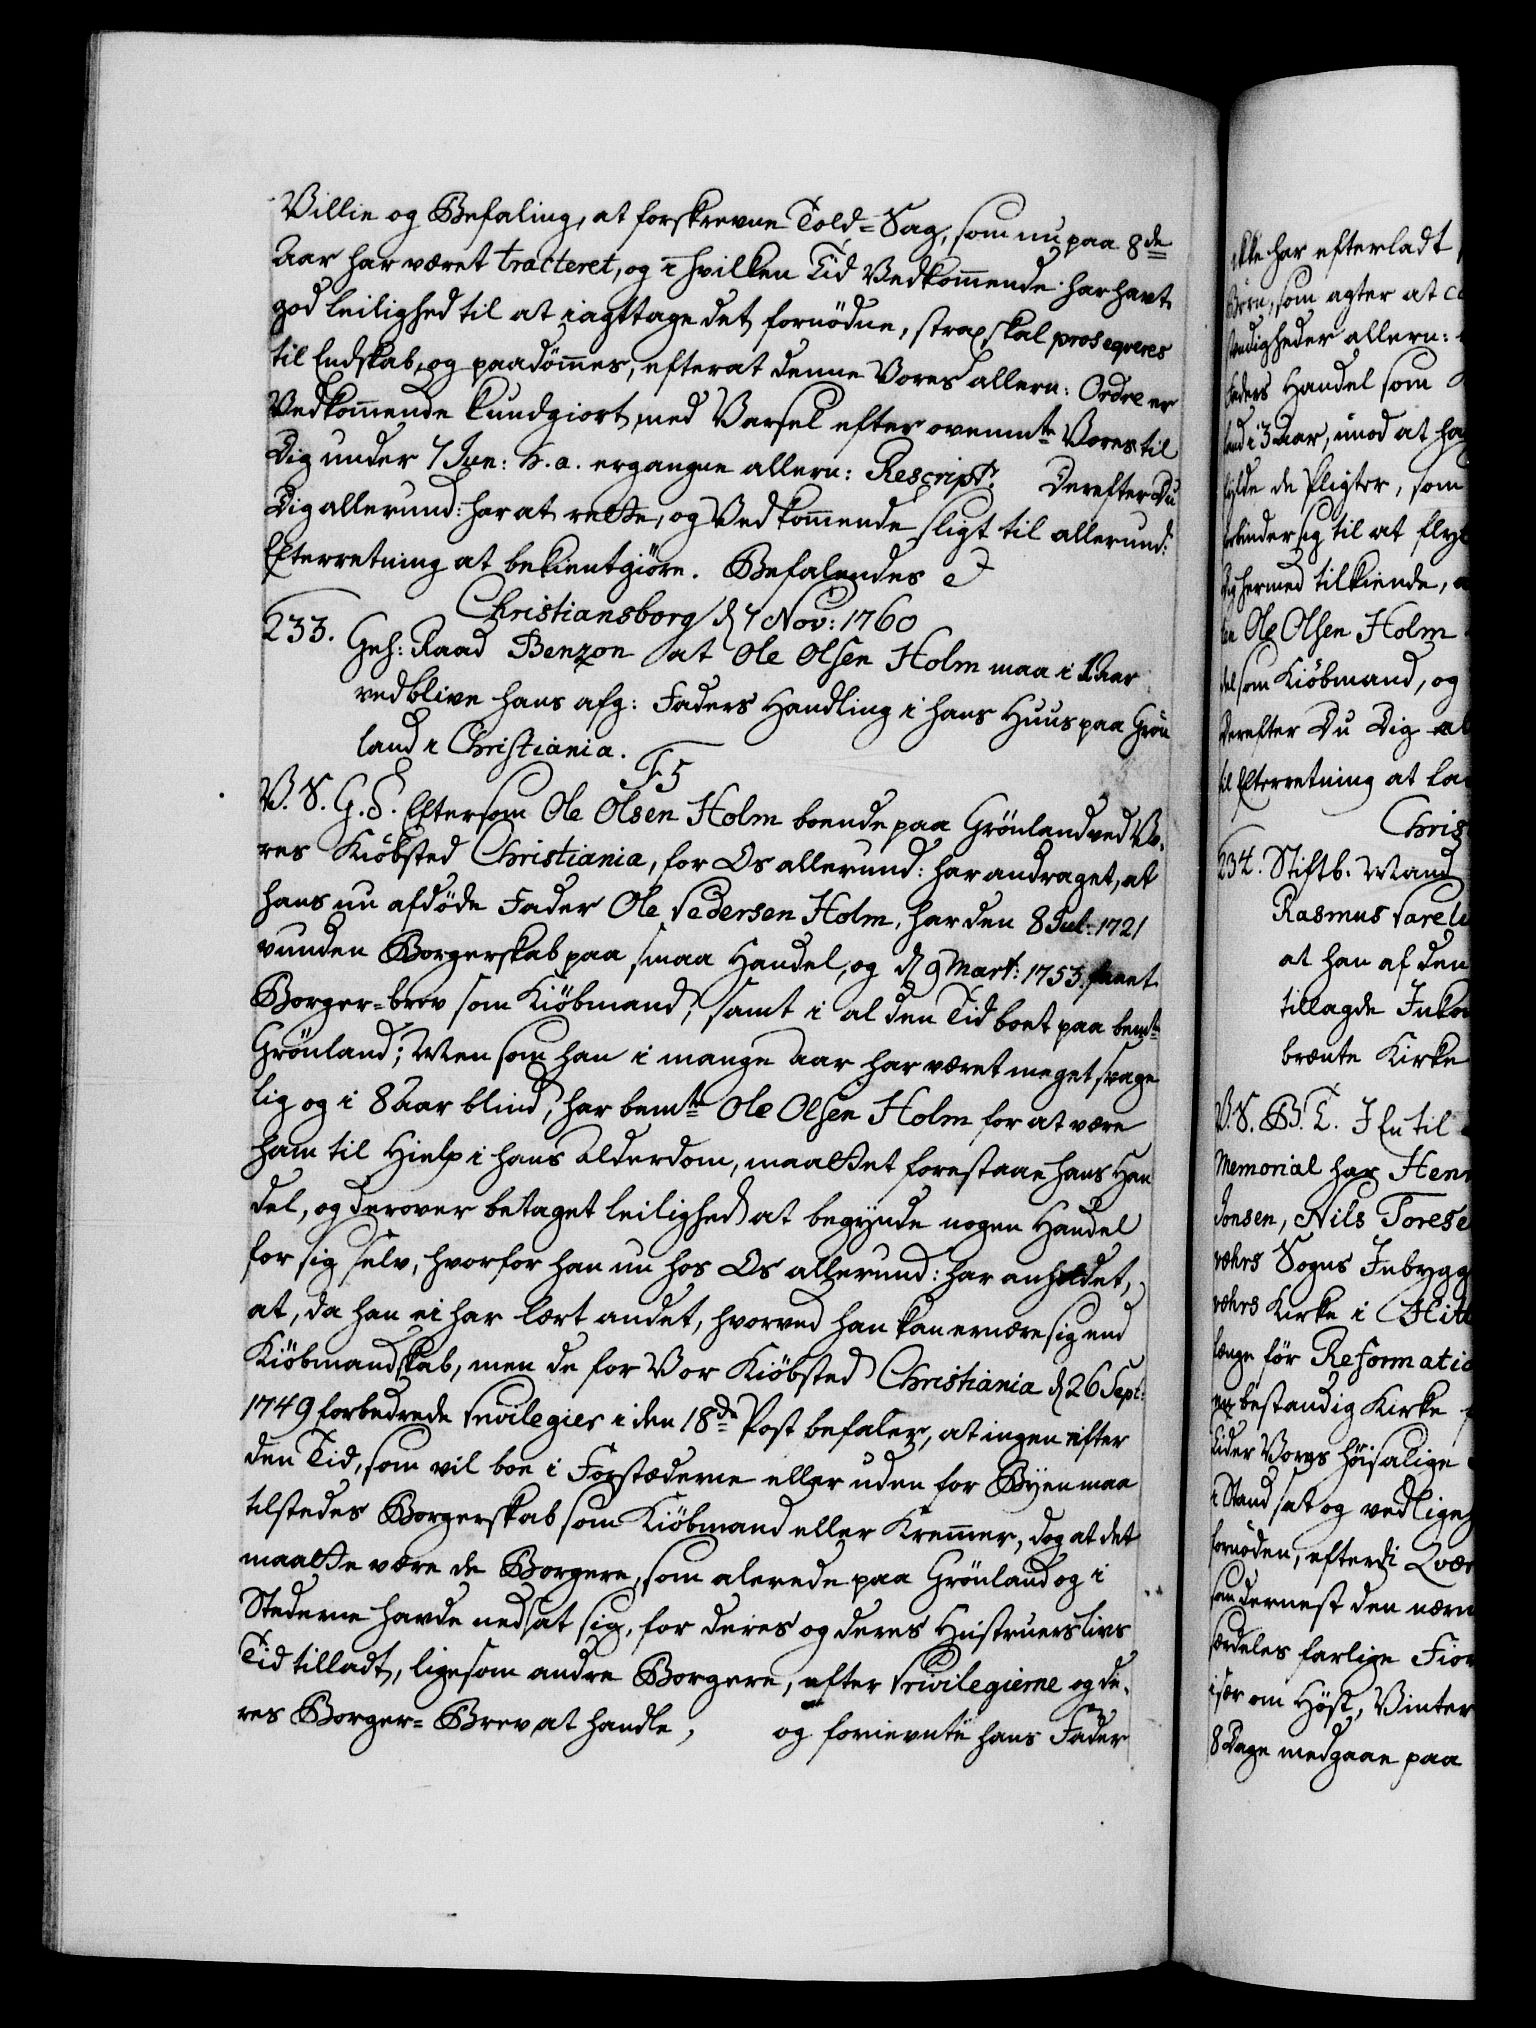 Villie og Befaling, at forskrevne Told=Sag, som nu paa 8de
Aar har været tracteret, og i hvilken Tid Vedkommende har havt
god leilighed til at iagttage det fornödne, strax skal proseqveres
til Endskab, og paadömmes, efterat denne Vores allern: Ordre er
Vedkommende kundgiort, med Varsel efter ovenmte Vores til
Dig under 7 Jun: h. a. ergangne allern: Rescript. Derefter Du
Dig allerund: har at rette, og Vedkommende sligt til allerund:
Efterretning at bekientgiöre. Befalendes
Christiansborg d 7 Nov: 1760
233. Geh: Raad Benzon at Ole Olsen Holm maa i 1 Aar
vedblive hans afg: Faders Handling i hans Huus paa Grön
land i Christiania.
F5
V. S. G. T. Eftersom Ole Olsen Holm boende paa Grönland ved Vo-
res Kiöbsted Christiania, for Os allerund: har andraget, at
hans nu afdöde Fader Ole Pedersen Holm, har den 8 Jul: 1721
vunden Borgerskab paa smaa Handel, og d 9 Mart: 1753 faaet
Borger=brev som Kiöbmand, samt i al den Tid boet paa bemte
Grönland; Men som han i mange Aar har været meget svage
lig og i 8 Aar blind, har bemte Ole Olsen Holm for at være
ham til Hielp i hans Alderdom, maattet forestaae hans Han
del, og derover betaget leilighed at begynde nogen Handel
for sig selv, hvorfor han nu hos Os allerund: har anholdet,
at, da han ei har lært andet, hvorved han kan ernære sig end
Kiöbmandskab, men de for Vor Kiöbsted Christiania d 26 Sept:
1749 forbedrede Privilegier i den 18de Post befaler, at ingen efter
den Tid, som vil boe i Forstæderne eller uden for Byen maa
tilstedes Borgerskab som Kiöbmand eller Kremmer, dog at det
maatte være de Borgere, som alerede paa Grönland og i
Stederne havde nedsat sig, for deres og deres Hustruers livs
Tid tilladt, ligesom andre Borgere, efter Privilegierne og de-
res Borger=Brev at handle, og forievnte hans Fader
ikke har efterladt
Börn, som agter at
stændigheder allern:
Faders Handel som
land i 3 Aar, imod at
fylde de Pligter, som
forbinder sig til at
Dig hermed tilkiende,
Ole Olsen Holm
del som Kiöbmand, og
Derefter Du Dig
til Efterretning at
Chris
234. Stiftb: Mand
Rasmus
at han af den
tillagde
brænte Kirke
V. S. B. T. I En til
Memorial har
Jonsen, Nils
Sogns
Kirke i
længe för
bestandig Kirke
tider Vores höisalige
i Stand sat og
fornöden, efterdi
dernest den
særdeles farlige
især om Höst, Vinter
8 Dage medgaae paa